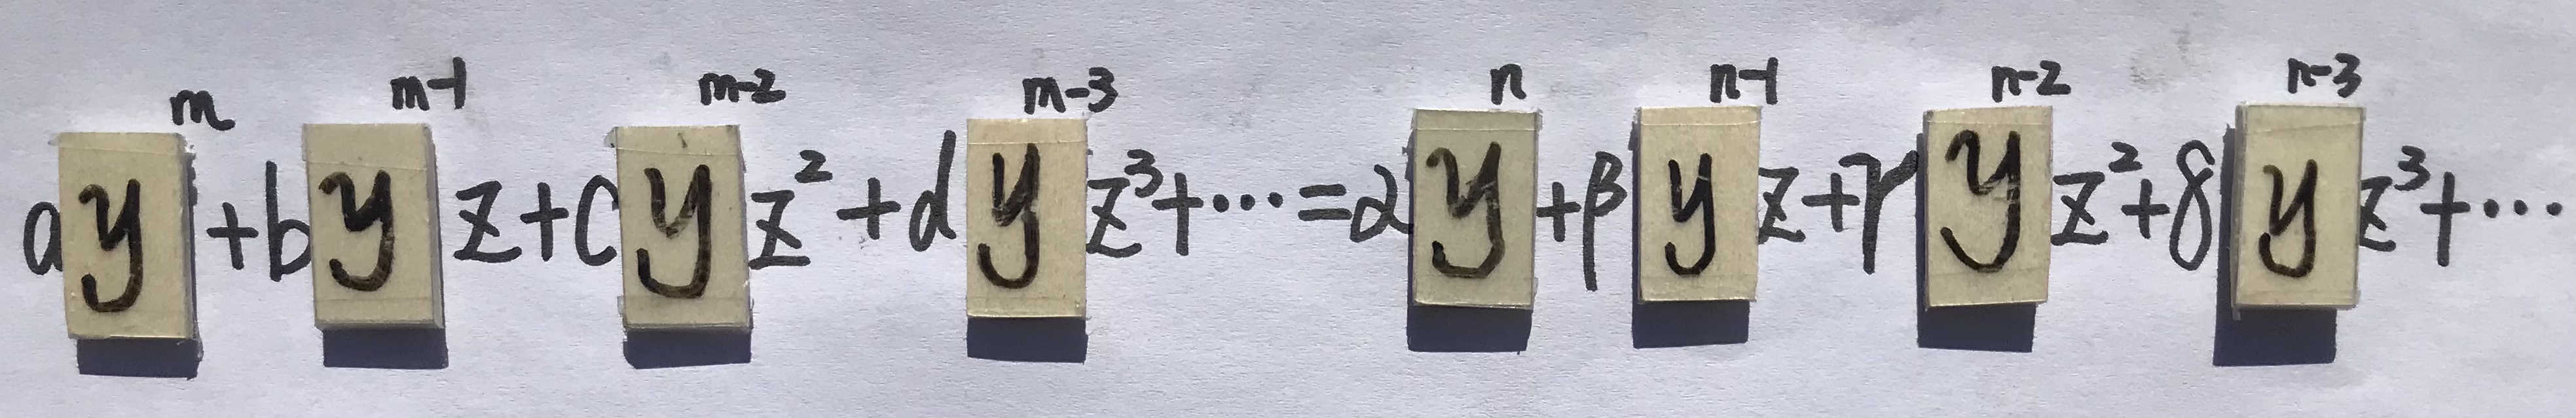 ay^m+by^{m-1}z+cy^{m-2}z²+dy^{m-3}z³+⋯=αy^n+βy^{n-1}z+γy^{n-2}z²+δy^{n-3}z³+⋯